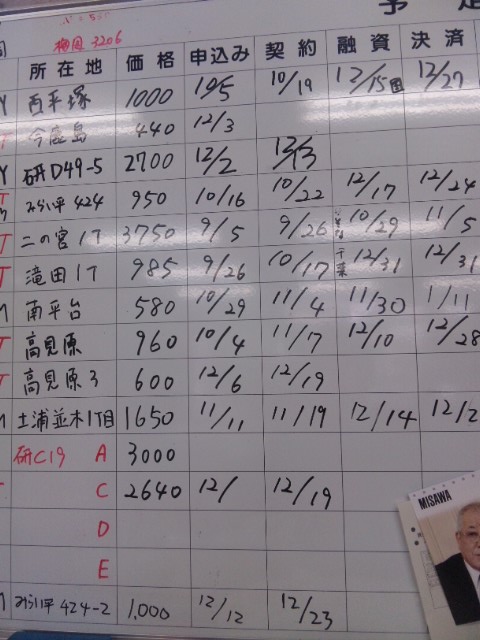 予 定
梅園 3206
所在地 価格 申込み 契約 融資 決済
Y 西平塚 1000 10/5 10/19 12/15 12/27
T 今鹿島 440 12/3
Y 研D49-5 2700 12/2 12/13
T みらい平 424 950 10/16 10/22 12/17 12/24
T 二の宮1T 3750 9/5 9/26 10/29 11/5
T 滝田1T 985 9/26 10/17 千葉 12/31 12/31
M 南平台 580 10/29 11/4 11/30 1/11
T 高見原 960 10/4 11/7 12/10 12/28
T 高見原3 600 12/6 12/19
M 土浦並木1丁目 1650 11/11 11/19 12/14 12/2
研C19 A 3000
C 2640 12/ 12/19
D
E
M みらい平 424-2 1,000 12/12 12/23
MISAWA